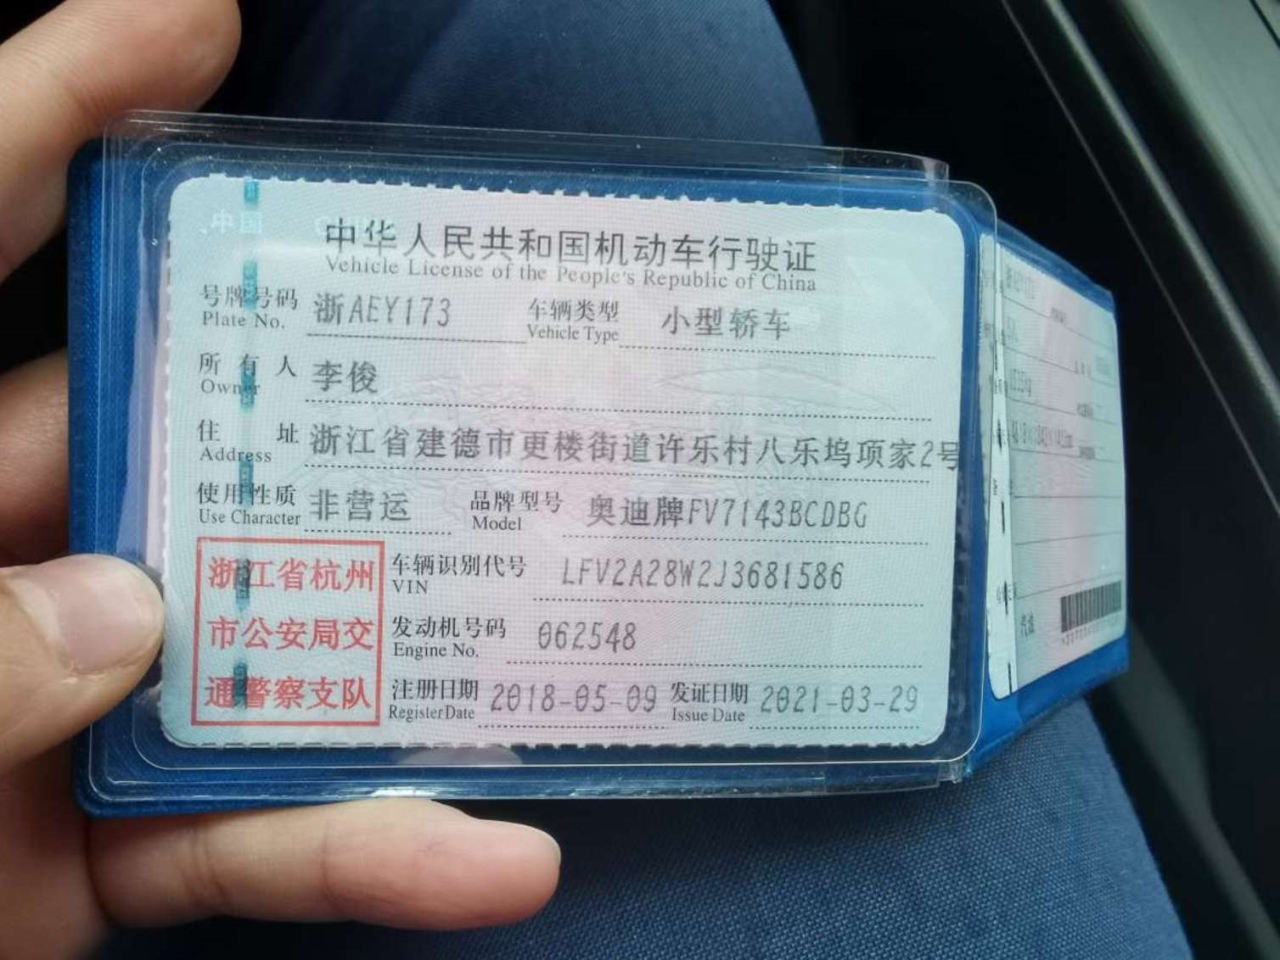 中华人民共和国机动车行驶证
Vehicle License of the People's Republic of China
号牌号码 浙AEY173 车辆类型 小型轿车
Plate No. Vehicle Type
所有人 李俊
Owner
住址 浙江省建德市更楼街道许乐村八乐坞项家2号
Address
使用性质 非营运 品牌型号 奥迪牌FV7143BCDBG
Use Character Model
浙江省杭州
市公安局交
通警察支队
车辆识别代号 LFV2A28W2J3681586
VIN
发动机号码 062548
Engine No.
注册日期 2018-05-09 发证日期 2021-03-29
Register Date Issue Date